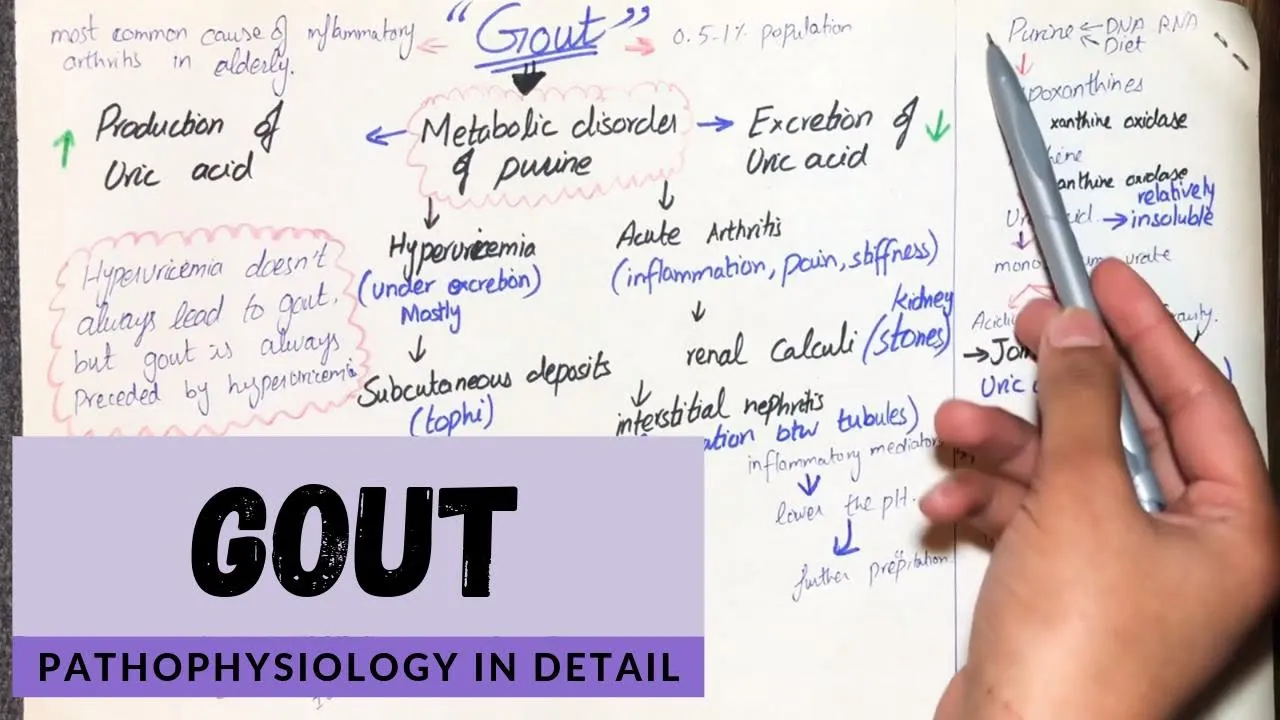 most common cause of inflammatory
arthritis in elderly.
"Gout"
0.5-1% population
Production of
Uric acid
Metabolic disorder
of purine
Excretion of
Uric acid
Hyperuricemia doesn't
always lead to gout,
but gout is always
Preceded by hyperuricemia
Hyperuricemia
(under excretion)
Mostly
Subcutaneous deposits
(tophi)
Acute Arthritis
(inflammation, pain, stiffness)
renal Calculi (stones)
kidney
interstitial nephritis
btw tubules)
inflammatory mediators
lower the pH.
further
Purine DNA RNA
Diet
xanthine oxidase
relatively
insoluble
urate
GOUT
PATHOPHYSIOLOGY IN DETAIL